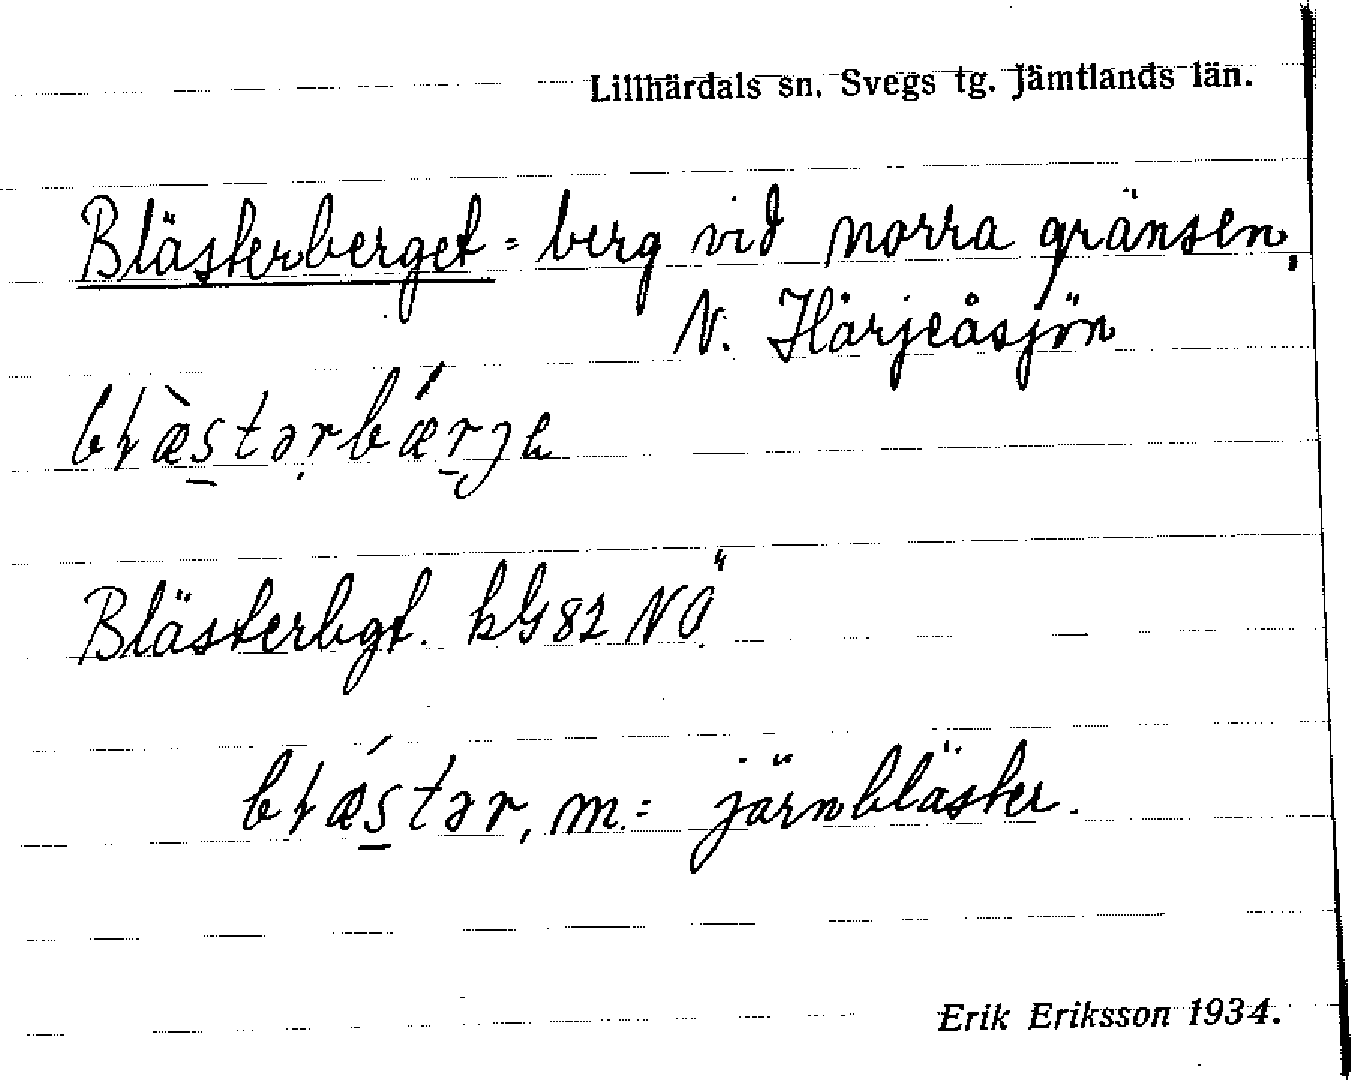 Lillhärdals sn. Svegs tg. Jämtlands län.
Blästerberget = berg vid norra gränsen,
N. Härjeåsjön
bɫæ̀s̲tərbǽr̲ɟe
Blästerbgt. kG82 NÖ
bɫǽs̲tər, m. = järnbläster.
Erik Eriksson 1934.